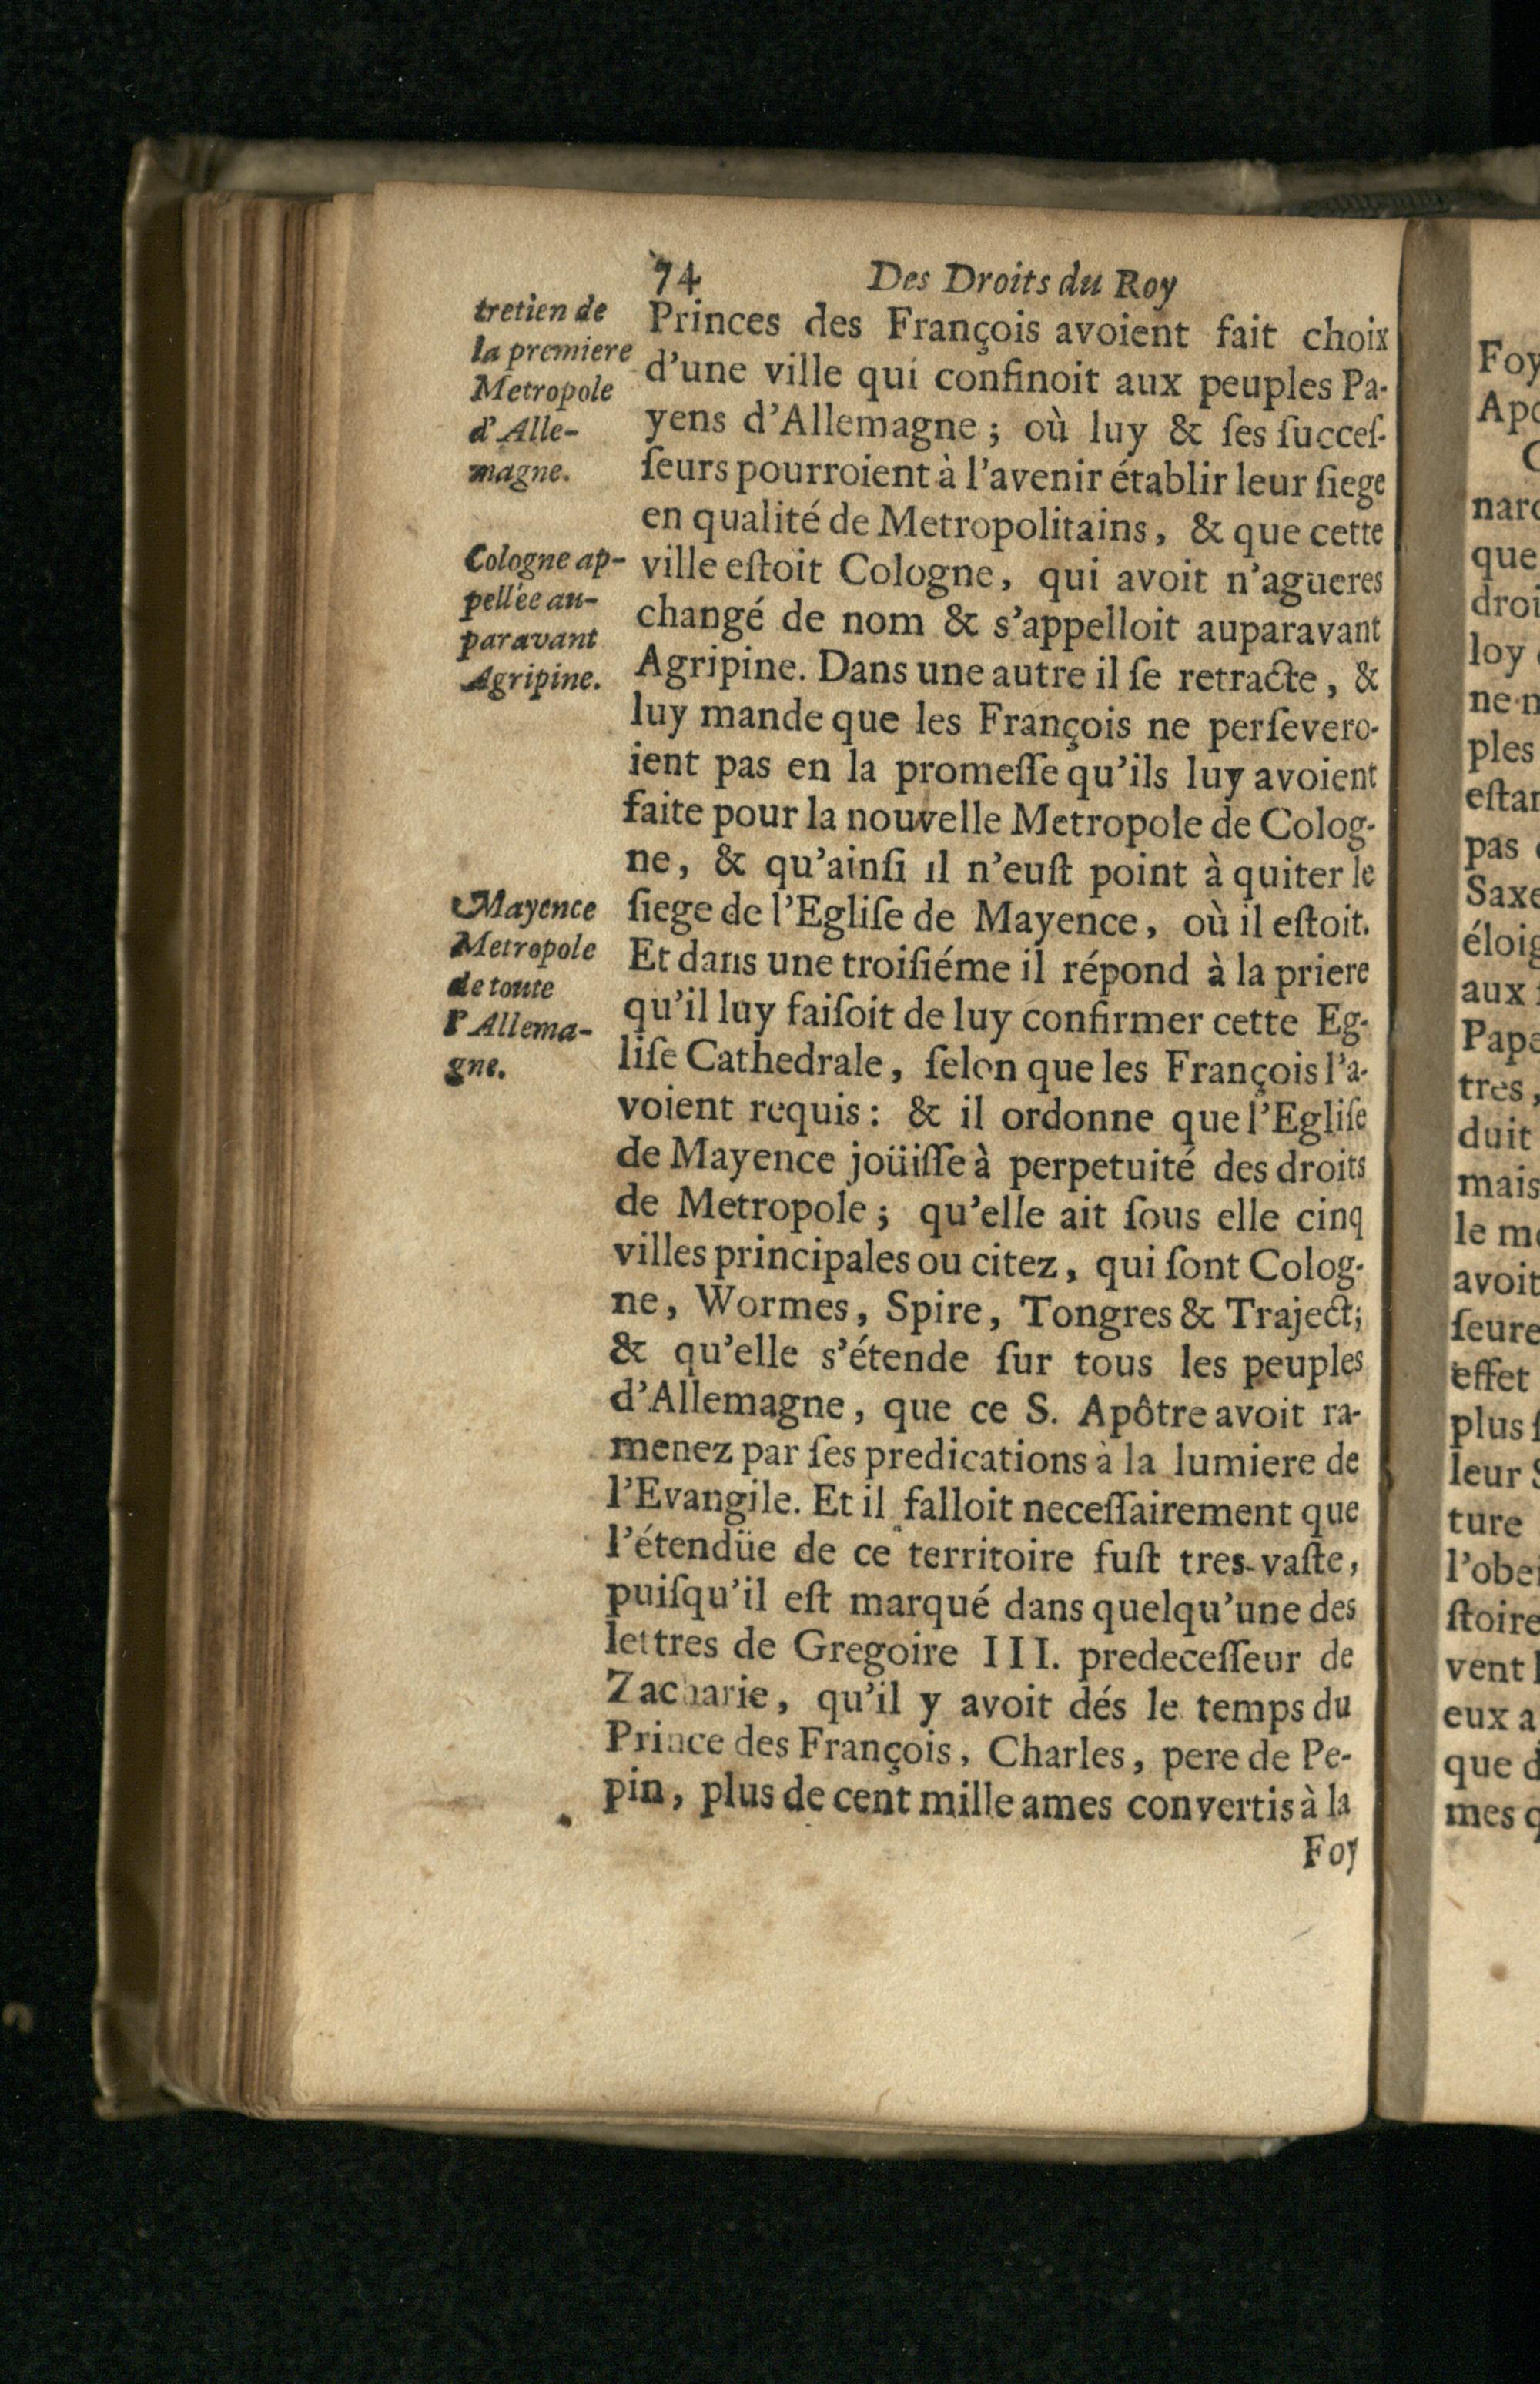 74 Des Droits du Roy
tretien de
la premiere
Metropole
d'Alle-
magne.
Cologne ap-
pellée au-
paravant
Agripine.
Mayence
Metropole
de toute
l'Allema-
gne.
Princes des François avoient fait choix
d'une ville qui confinoit aux peuples Pa-
yens d'Allemagne ; où luy & ſes ſucceſ-
ſeurs pourroient à l'avenir établir leur ſiege
en qualité de Metropolitains, & que cette
ville eſtoit Cologne, qui avoit n'agueres
changé de nom & s'appelloit auparavant
Agripine. Dans une autre il ſe retracte, &
luy mande que les François ne perſevero-
ient pas en la promeſſe qu'ils luy avoient
faite pour la nouvelle Metropole de Colog-
ne, & qu'ainſi il n'euſt point à quiter le
ſiege de l'Egliſe de Mayence, où il eſtoit.
Et dans une troiſiéme il répond à la priere
qu'il luy faiſoit de luy confirmer cette Eg-
liſe Cathedrale, ſelon que les François l'a-
voient requis : & il ordonne que l'Egliſe
de Mayence joüiſſe à perpetuité des droits
de Metropole ; qu'elle ait ſous elle cinq
villes principales ou citez, qui ſont Colog-
ne, Wormes, Spire, Tongres & Traject;
& qu'elle s'étende ſur tous les peuples
d'Allemagne, que ce S. Apôtre avoit ra-
menez par ſes predications à la lumiere de
l'Evangile. Et il falloit neceſſairement que
l'étendüe de ce territoire fuſt tres-vaſte,
puiſqu'il eſt marqué dans quelqu'une des
lettres de Gregoire III. predeceſſeur de
Zacharie, qu'il y avoit dés le temps du
Prince des François, Charles, pere de Pe-
pin, plus de cent mille ames convertis à la
Foy
Foy
nar
que
droi
loy
ne n
ples
eſtan
pas
Saxe
éloig
aux
Pape
tres,
duit
mais
le m
avoit
ſeure
effet
plus
leur
ture
l'obei
ſtoire
vent
eux a
que d
mes q